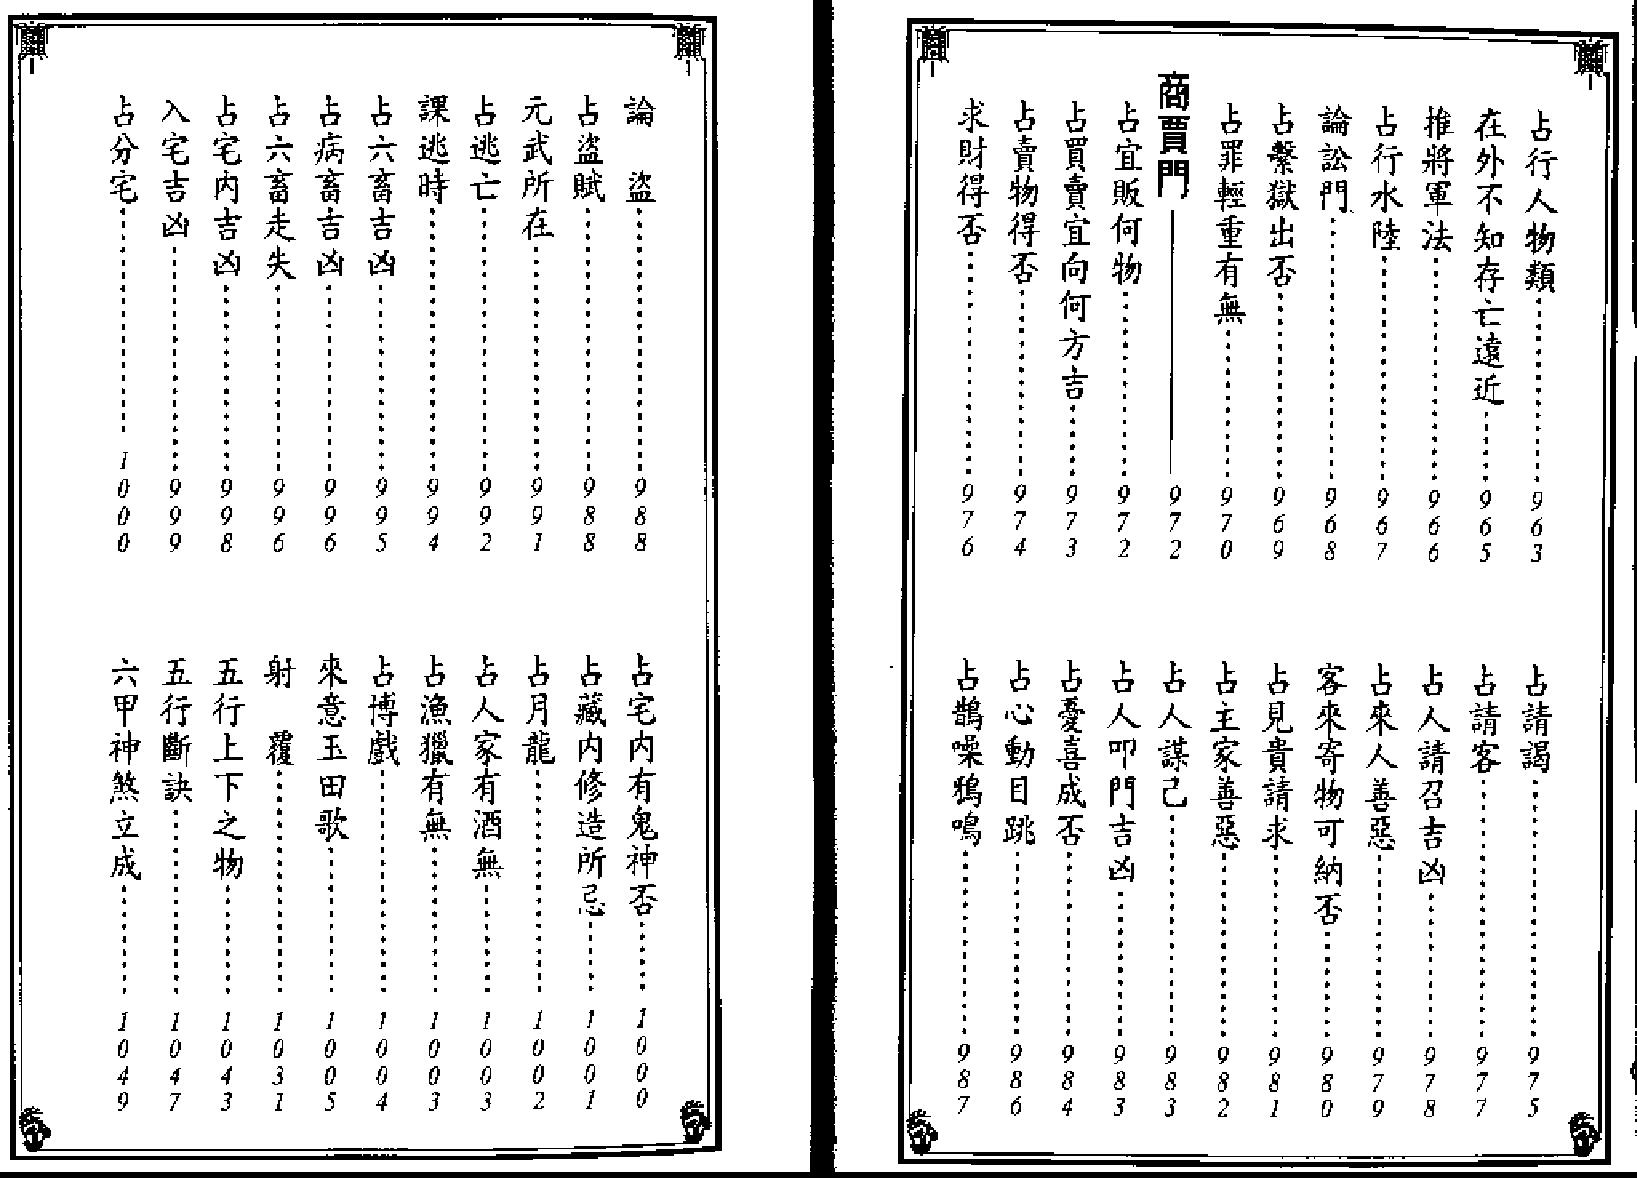 占行人物類 963
在外不知存亡遠近 965
推將軍法 966
占行水陸 967
論訟門 968
占繫獄出否 969
占罪輕重有無 970
商賈門 972
占宜販何物 972
占買賣宜向何方吉 973
占賣物得否 974
求財得否 976
占請謁 975
占請客 977
占人請召吉凶 978
占來人善惡 979
客來寄物可納否 980
占見貴請求 981
占主家善惡 982
占人謀己 983
占人叩門吉凶 983
占憂喜成否 984
占心動目跳 986
占鵲噪鴉鳴 987
論 盜 988
占盜賊 988
元武所在 991
占逃亡 992
課逃時 994
占六畜吉凶 995
占病畜吉凶 996
占六畜走失 996
占宅內吉凶 998
入宅吉凶 999
占分宅 1000
占宅內有鬼神否 1000
占藏內修造所忌 1001
占月龍 1002
占人家有酒無 1003
占漁獵有無 1003
占博戲 1004
來意玉田歌 1005
射 覆 1031
五行上下之物 1043
五行斷訣 1047
六甲神煞立成 1049